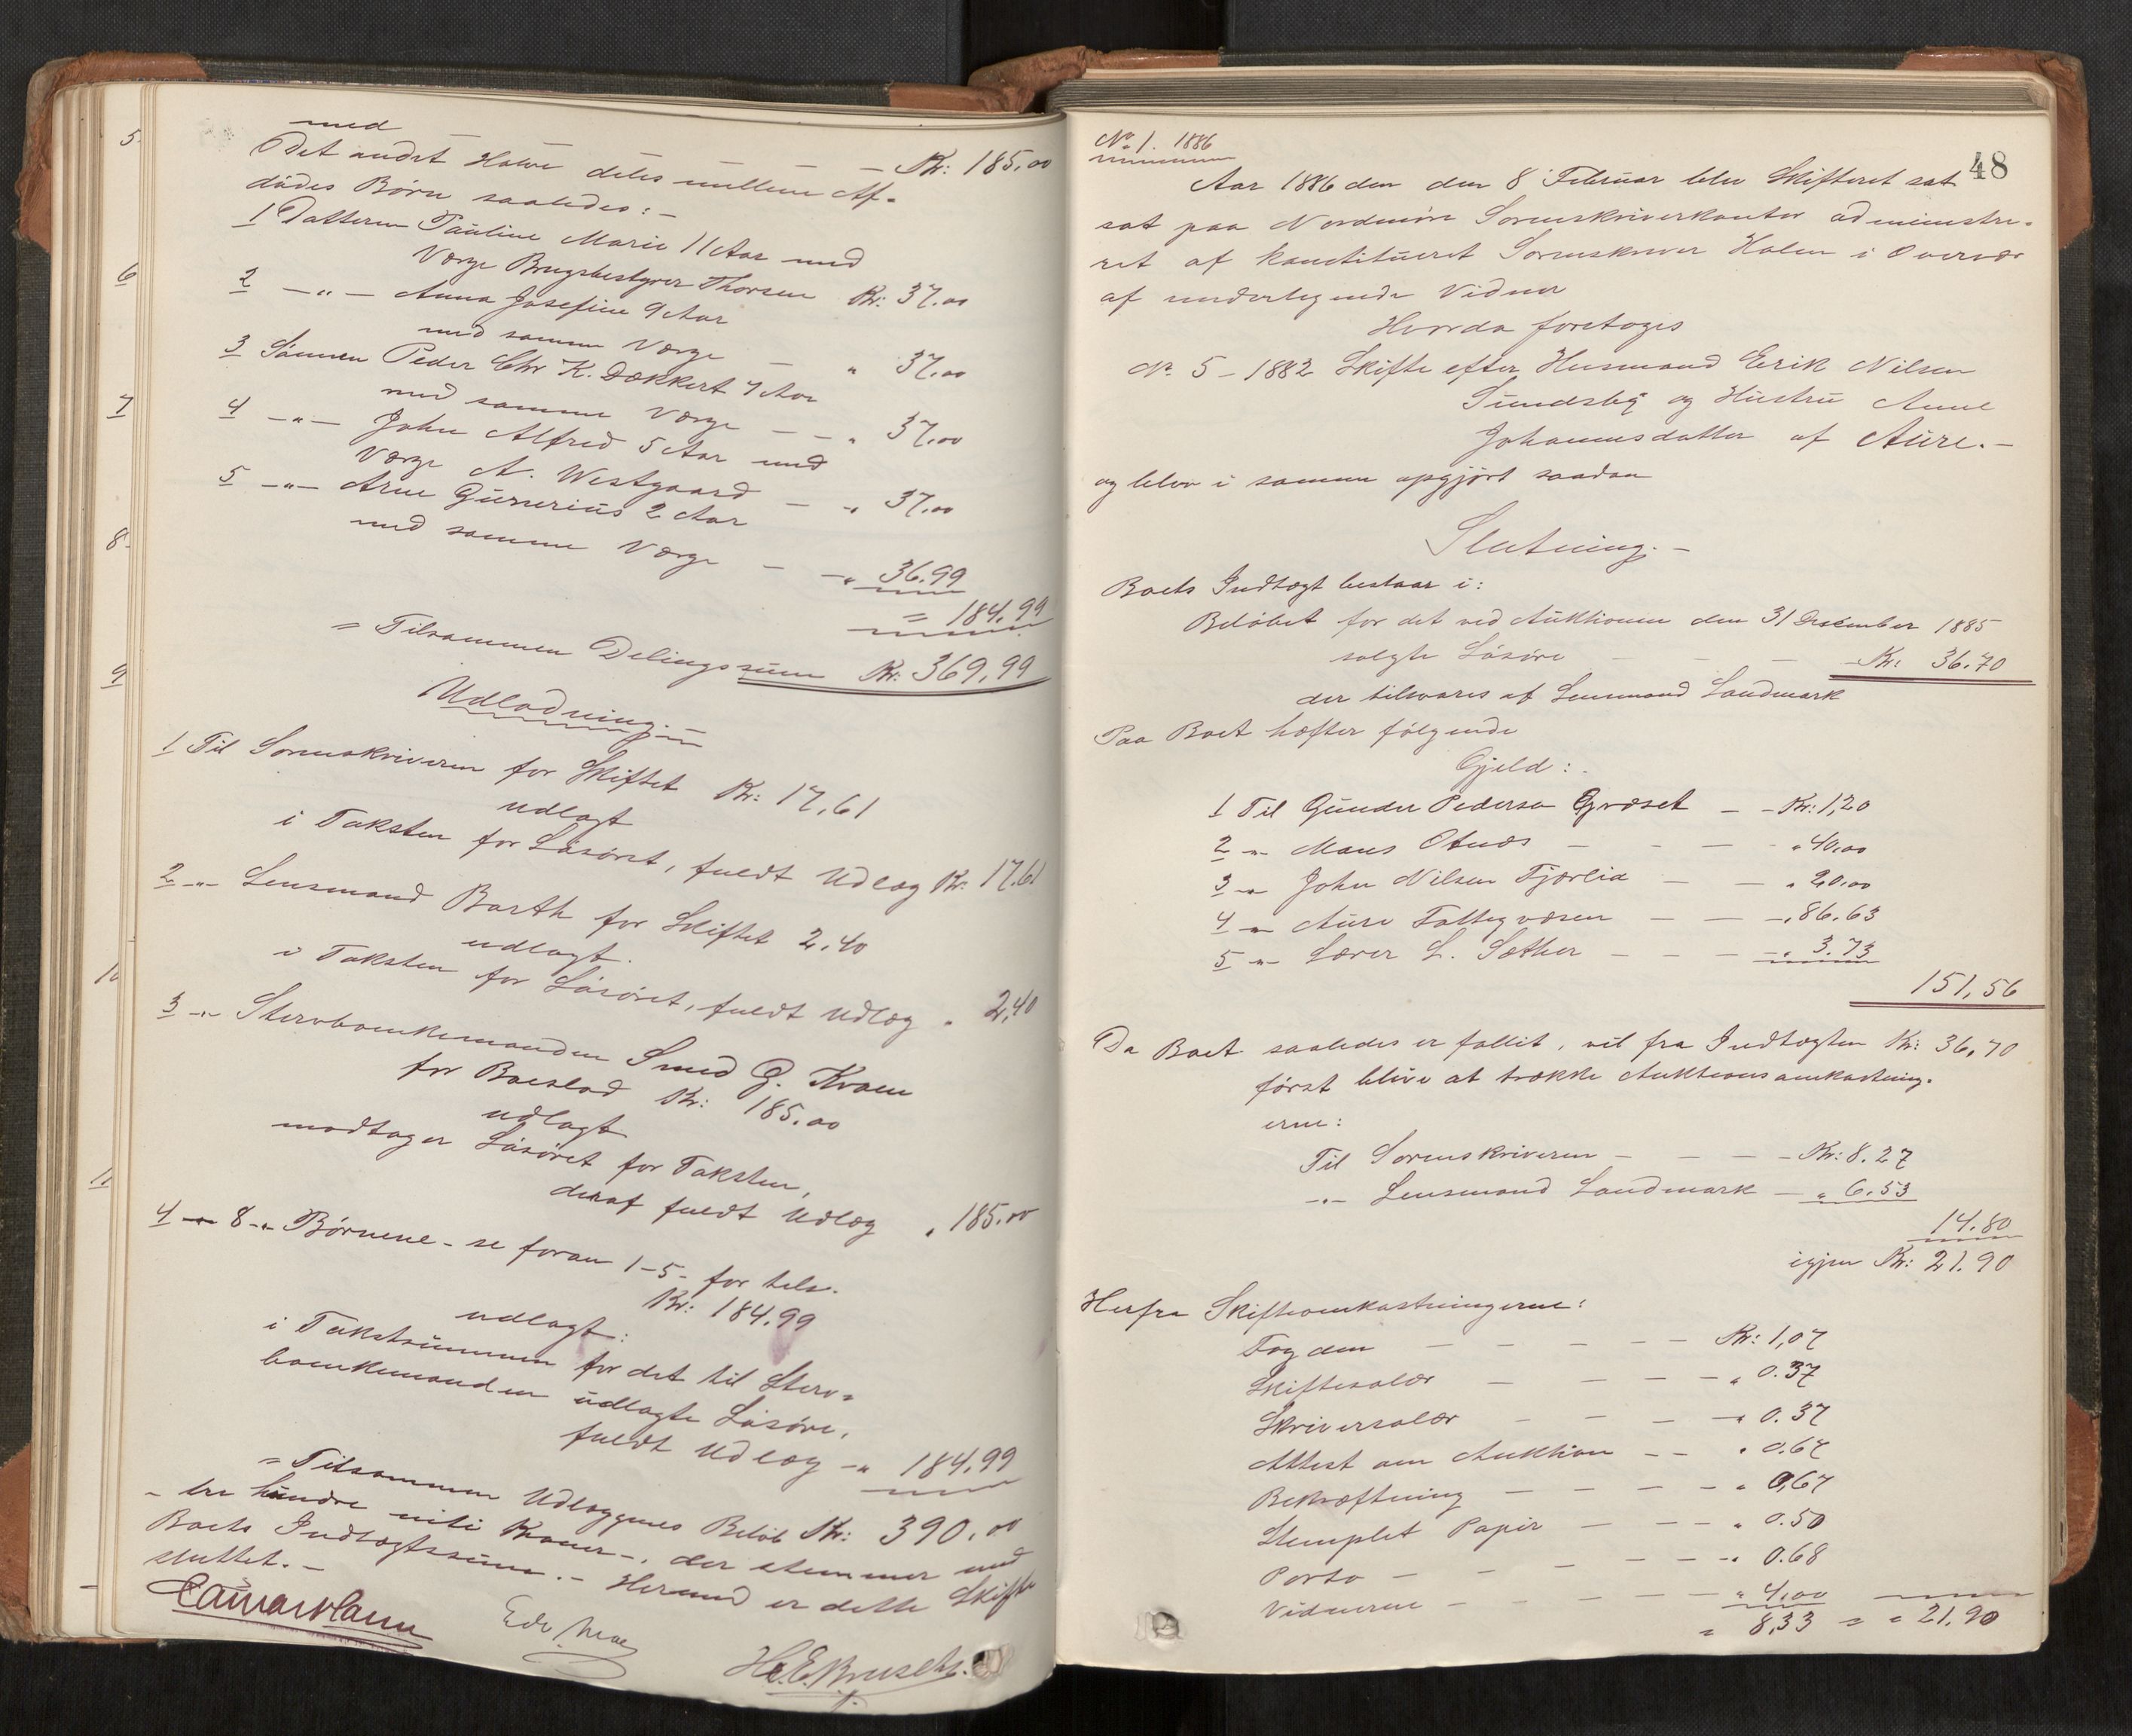 5.
6
7
8.
9
10
11
med — — — Kr: 185,00
Det andet Halve deles mellem Af-
dødes Børn saaledes: -
1 Datteren Pauline Marie 11 Aar med
Værge Brugsbestyrer Thorsen Kr: 37.00
2 —"— Anna Josefine 9 Aar
med samme Værge — " 37.00
3 Sønnen Peder Chr K. Dækkert 7 Aar
med samme Værge — — " 37.00
4 —"— John Alfred 5 Aar med
Værge A. Westgaard — " 37.00
5 —"— Arne Gunerius 2 Aar
med samme Værge — —" 36.99
= 184,99
= Tilsammen Delingssum Kr: 369,99
Udlodning. —
1 Til Sorenskriveren for Skiftet Kr: 17,61
udlagt
i Taksten for Løsøret, fuldt Udlæg Kr: 17.61
2 -"- Lensmand Barth for Skiftet 2,40
udlagt.
i Taksten for Løsøret, fuldt Udlæg " 2,40
3 -"- Stervboenkemanden Smed G. Kvam
for Boeslod Kr: 185.00
udlagt
modtager Løsøret for Taksten,
deraf fuldt Udlæg " 185.00
4 -"- 8 -"- Børnene - se foran 1-5- for tils.
Kr: 184,99
udlagt:
i Takstsummen for det til Sterv-
boenkemanden udlagte Løsøre,
fuldt Udlæg -" 184,99
= Tilsammen Udlæggenes Beløb Kr: 390.00
- tre hundre niti Kroner -, der stemmer med
Boets Indtægtssum. - Hermed er dette Skifte
sluttet. -
H.E. Brusch
48
No 1. 1886
Aar 1886 den den 8 Februar blev Skifteret sat
sat paa Nordmøre Sorenskriverkontor administre-
ret af konstitueret Sorenskriver Holm i Overvær
af undertegnede Vidner
Hvorda foretoges
No 5 - 1882 Skifte efter Husmand Eerik Nilsen
Sundsby og Hustru Anne
Johannesdatter af Aure. -
og blev i samme opgjort saadan
Slutning. -
Boets Indtægt bestaar i:
Beløbet for det ved Auktionen den 31 Desember 1885
solgte Løsøre — — — Kr: 36.70
der tilsvares af Lensmand Landmark
Paa Boet hæfter følgende
Gjeld:
1 Til Gunder Pedersen Grøset — - Kr: 1,20
2 -"- Mons Otnæs — — — " 40,00
3 -" John Nilsen Fjærlia — — " 20,00
4 -"- Aure Fattigvæsen — — " 86,63
5 -"- Lærer L. Sæther — — — " 3.73
151,56
Da Boet saaledes er fallit, vil fra Indtægten Kr: 36,70
først blive at trække Auktionsomkostning-
erne:
Til Sorenskriveren — — — — Kr: 8.27
-"- Lensmand Landmark — " 6,53
14.80
igjen Kr: 21.90
Herfra Skifteomkostningerne:
Fogden — — — — — Kr: 1,07
Skiftesalær — — — — " 0.37
Skriversalær — — — — " 0.37
Attest om Auktion — — " 0.67
Bekræftning — — — — " 0,67
Stemplet Papir — — — " 0.50
Porto — — — — — " 0.68
Vidnerne — — — — " 4,00
= 8,33 = " 21.90